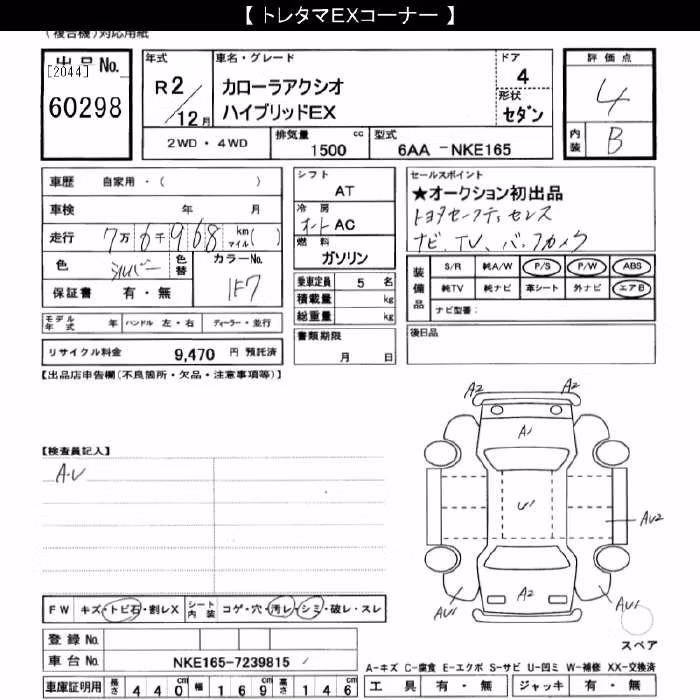 【 トレタマEXコーナー 】
(複合機)対応用紙
出品No.
[2044]
60298
年式
R2/12月
車名・グレード
カローラアクシオ
ハイブリッドEX
ドア
4
形状
セダン
評価点
4
内装
B
2WD・4WD
排気量
1500 cc
型式
6AA -NKE165
車歴 自家用・( )
車検 年 月
走行 7万6千968 km マイル( )
色 シルバー 色替
カラーNo.
1F7
保証書 有・無
シフト
AT
冷房
オート AC
燃料
ガソリン
乗車定員 5 名
積載量 kg
総重量 kg
書類期限
月 日
セールスポイント
★オークション初出品
トヨタセーフティセンス
ナビ、TV、バックカメラ
装備品
S/R 純A/W P/S P/W ABS
純TV 純ナビ 革シート 外ナビ エアB
ナビ型番:
後日品
モデル年式 年 ハンドル 左・右 ディーラー・並行
リサイクル料金 9,470 円 預託済
【出品店申告欄(不良箇所・欠品・注意事項等)】
【検査員記入】
A.U
A2
A2
A1
U1
AU2
A2
AU1
AU1
スペア
FW キズ・トビ石・割レX
シート内装 コゲ・穴・汚レ・シミ・破レ・スレ
登録No.
車台No. NKE165-7239815
車庫証明用 長さ 440cm 幅 169cm 高さ 146cm
A-キズ C-腐食 E-エクボ S-サビ U-凹ミ W-補修 XX-交換済
工具 有・無 ジャッキ 有・無